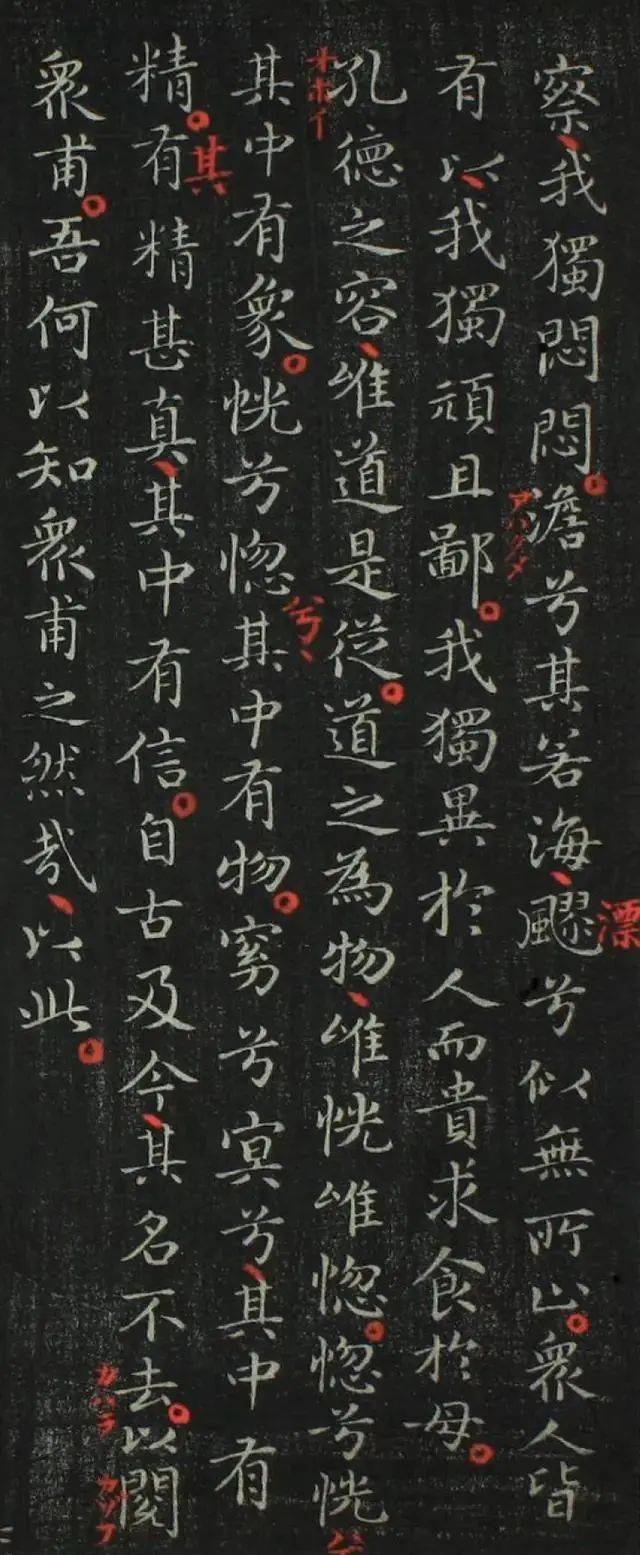 察、我獨悶悶。澹兮其若海、飂兮似無所止。衆人皆
漂
有以、我獨頑且鄙。我獨異於人而貴求食於母。
孔德之容、唯道是從。道之為物、唯恍唯惚。惚兮恍
オホイ
兮
其中有象。恍兮惚其中有物。窈兮冥兮、其中有
兮、
精。有精甚真、其中有信。自古及今、其名不去。以閱
其
カハラ
衆甫。吾何以知衆甫之然哉、以此。